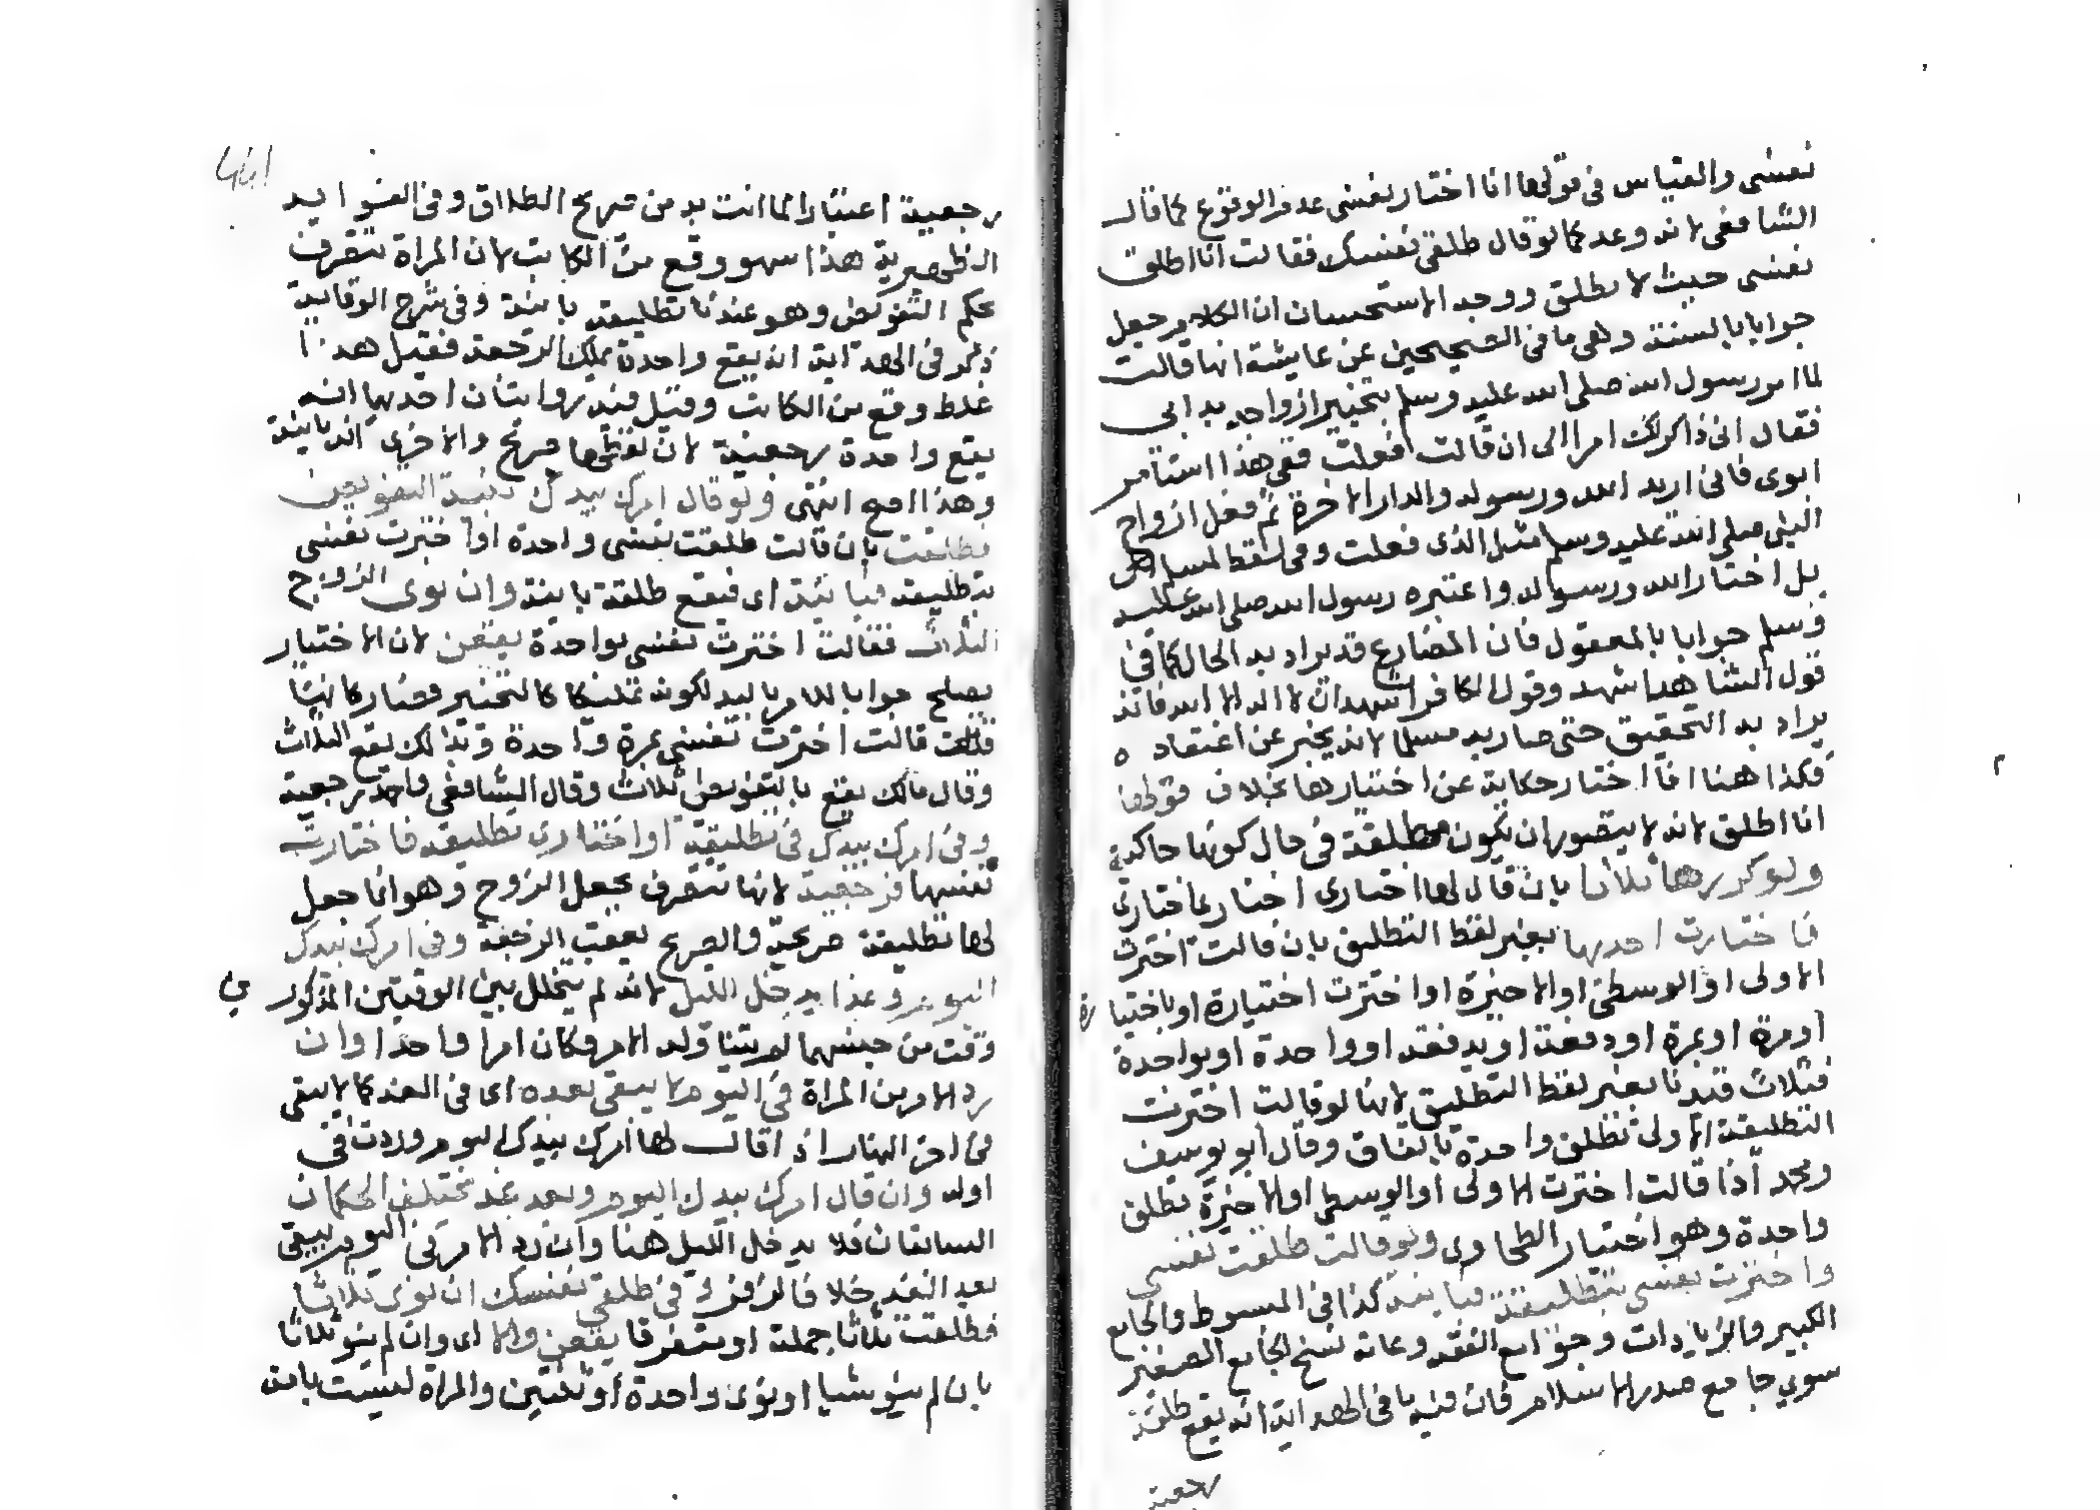 نفسى والقياس فى قولها انا اختار نفسى عدم الوقوع كما قال
الشافعى لانه وعد كما لو قال طلقى نفسك فقالت انا اطلق
نفسى حيث لا تطلق ووجه الاستحسان ان الكلام جعل
جوابا بالسنة وهى ما فى الصحيحين عن عايشة انها قالت
لما امر رسول الله صلى الله عليه وسلم بتخيير ازواجه بدا بى
فقال انى ذاكر لك امرا الى ان قالت فقلت ففى هذا استامر
ابوى فانى اريد الله ورسوله والدار الاخرة ثم فعل ازواج
النبى صلى الله عليه وسلم مثل الذى فعلت وفى لفظ لمسلم
بل اختار الله ورسوله واعتبره رسول الله صلى الله عليه
وسلم جوابا بالمعقول فان المضارع قد يراد به الحال كما فى
قول الشاهد اشهد وقول الكافر اشهد ان لا اله الا الله فانه
يراد به التحقيق حتى صار به مسلما لانه يخبر عن اعتقاده
فكذا هنا انا اختار حكاية عن اختيارها بخلاف قولها
انا اطلق لانه لا يتصور ان تكون مطلقة فى حال كونها حاكية
ولو كررها ثلاثا بان قال لها اختارى اختارى اختارى
فاختارت احدها بغير لفظ التطليق بان قالت اخترت
الاولى او الوسطى او الاخيرة او اخترت اختيارة او باختيارة
او مرة او بمرة او دفعة او بدفعة او واحدة او بواحدة
فثلاث قيدنا بغير لفظ التطليق لانها لو قالت اخترت
التطليقة الاولى تطلق واحدة باتفاق وقال ابو يوسف
ومحمد اذا قالت اخترت الاولى او الوسطى او الاخيرة تطلق
واحدة وهو اختيار الطحاوى ولو قالت طلقت نفسى
واخترت نفسى بتطليقة فباينة كذا فى المبسوط والجامع
الكبير والزيادات وجوامع الفقه وعامة نسخ الجامع الصغير
سوى جامع صدر الاسلام فان فيه ما فى الهداية انه يقع طلقة
رجعية
رجعية اعتبارا لما اتت به من صريح الطلاق وفى الفوايد
الظهيرية هذا سهو وقع من الكاتب لان المراة تتصرف
بحكم التفويض وهو عندنا تطليقة باينة وفى شرح الوقاية
ذكر فى الهداية انه يقع واحدة يملك الرجعة فقيل هذا
غلط وقع من الكاتب وقيل فيه روايتان احدهما انه
يقع واحدة رجعية لان لفظها صريح والاخرى انه باينة
وهذا اصح انتهى ولو قال امرك بيدك بنية التفويض
فطلقت بان قالت طلقت نفسى واحدة او اخترت نفسى
بتطليقة فباينة اى فيقع طلقة باينة وان نوى الزوج
الثلاث فقالت اخترت نفسى بواحدة يقعن لان الاختيار
يصلح جوابا للامر باليد لكونه تمليكا كالتخيير فصار كانها
قالت اخترت نفسى بمرة واحدة وبذلك يقع الثلاث
وقال مالك يقع بالتفويض ثلاث وقال الشافعى واحدة رجعية
وفى امرك بيدك فى تطليقة او اختارى تطليقة فاختارت
نفسها فرجعية لانها تتصرف بجعل الزوج وهو انما جعل
لها تطليقة صريحة والصريح يعقب الرجعة وفى امرك بيدك
اليوم وغدا يدخل الليل لانه لم يتخلل بين الوقتين المذكورين
وقت من جنسهما لم يتناوله الامر فكان امرا واحدا وان
رد الامر من المراة فى اليوم لا يبقى بعده اى فى الغد كما لا يبقى
فى اخر النهار اذا قال لها امرك بيدك اليوم وردت فى
اوله وان قال امرك بيدك اليوم وبعد غد تختلف الحكمان
السابقان فلا يدخل الليل هنا وان رد الامر فى اليوم يبقى
بعد الغد خلافا لزفر وفى طلقى نفسك ان نوى ثلاثا
فطلقت ثلاثا جملة او متفرقا يقعن والا اى وان لم ينو ثلاثا
بان لم ينو شيا او نوى واحدة او ثنتين والمراة ليست بامة